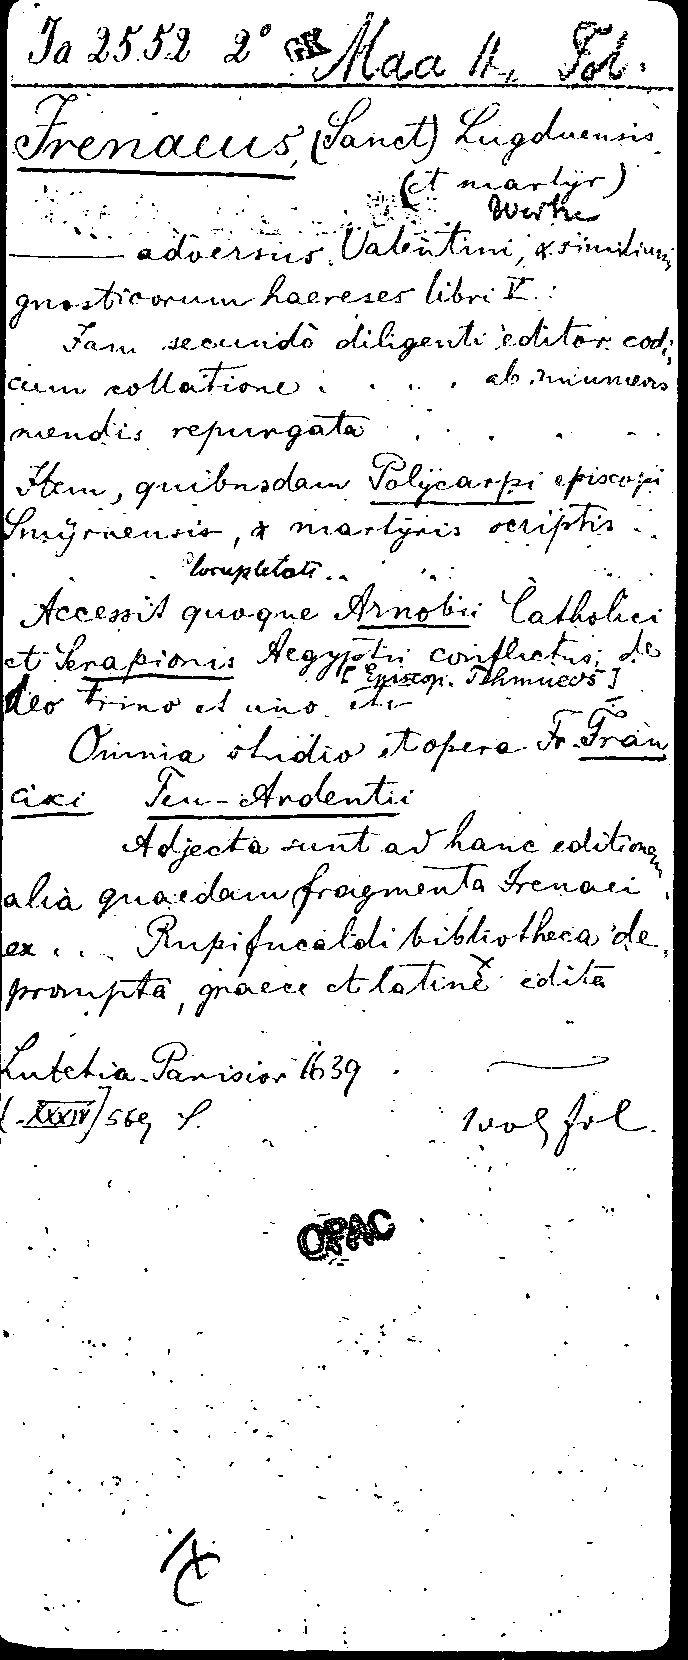 Ja 2552 2° GK Maa 11, Fol.
Irenaeus, (Sanct) Lugduensis
(et martyr)
Werke
—— adversus Valentini, & similium
gnosticorum haereses libri V. :
Jam secundò diligenti editor. codi,
cum collatione . . . . ab innumeris
mendis repurgata . . . . .
Item, quibusdam Polycarpi episcopi
Smyrnensis, & martyris scriptis ..
locupletati ..
Accessit quoque Arnobii Catholici
et Serapionis Aegyptii conflictus, de
[Episcop. Thmueos]
deo trino et uno etc
Omnia studio et opera Fr. Fran
cisci Feu-Ardentii
Adjecta sunt ad hanc editionem
alia quaedam fragmenta Irenaei
ex . . . Rupifucaldi bibliotheca de,
prompta, graece et latinè edita
Lutetia Parisior 1639
[XXXIV] 569 S.
fol.
OPAC